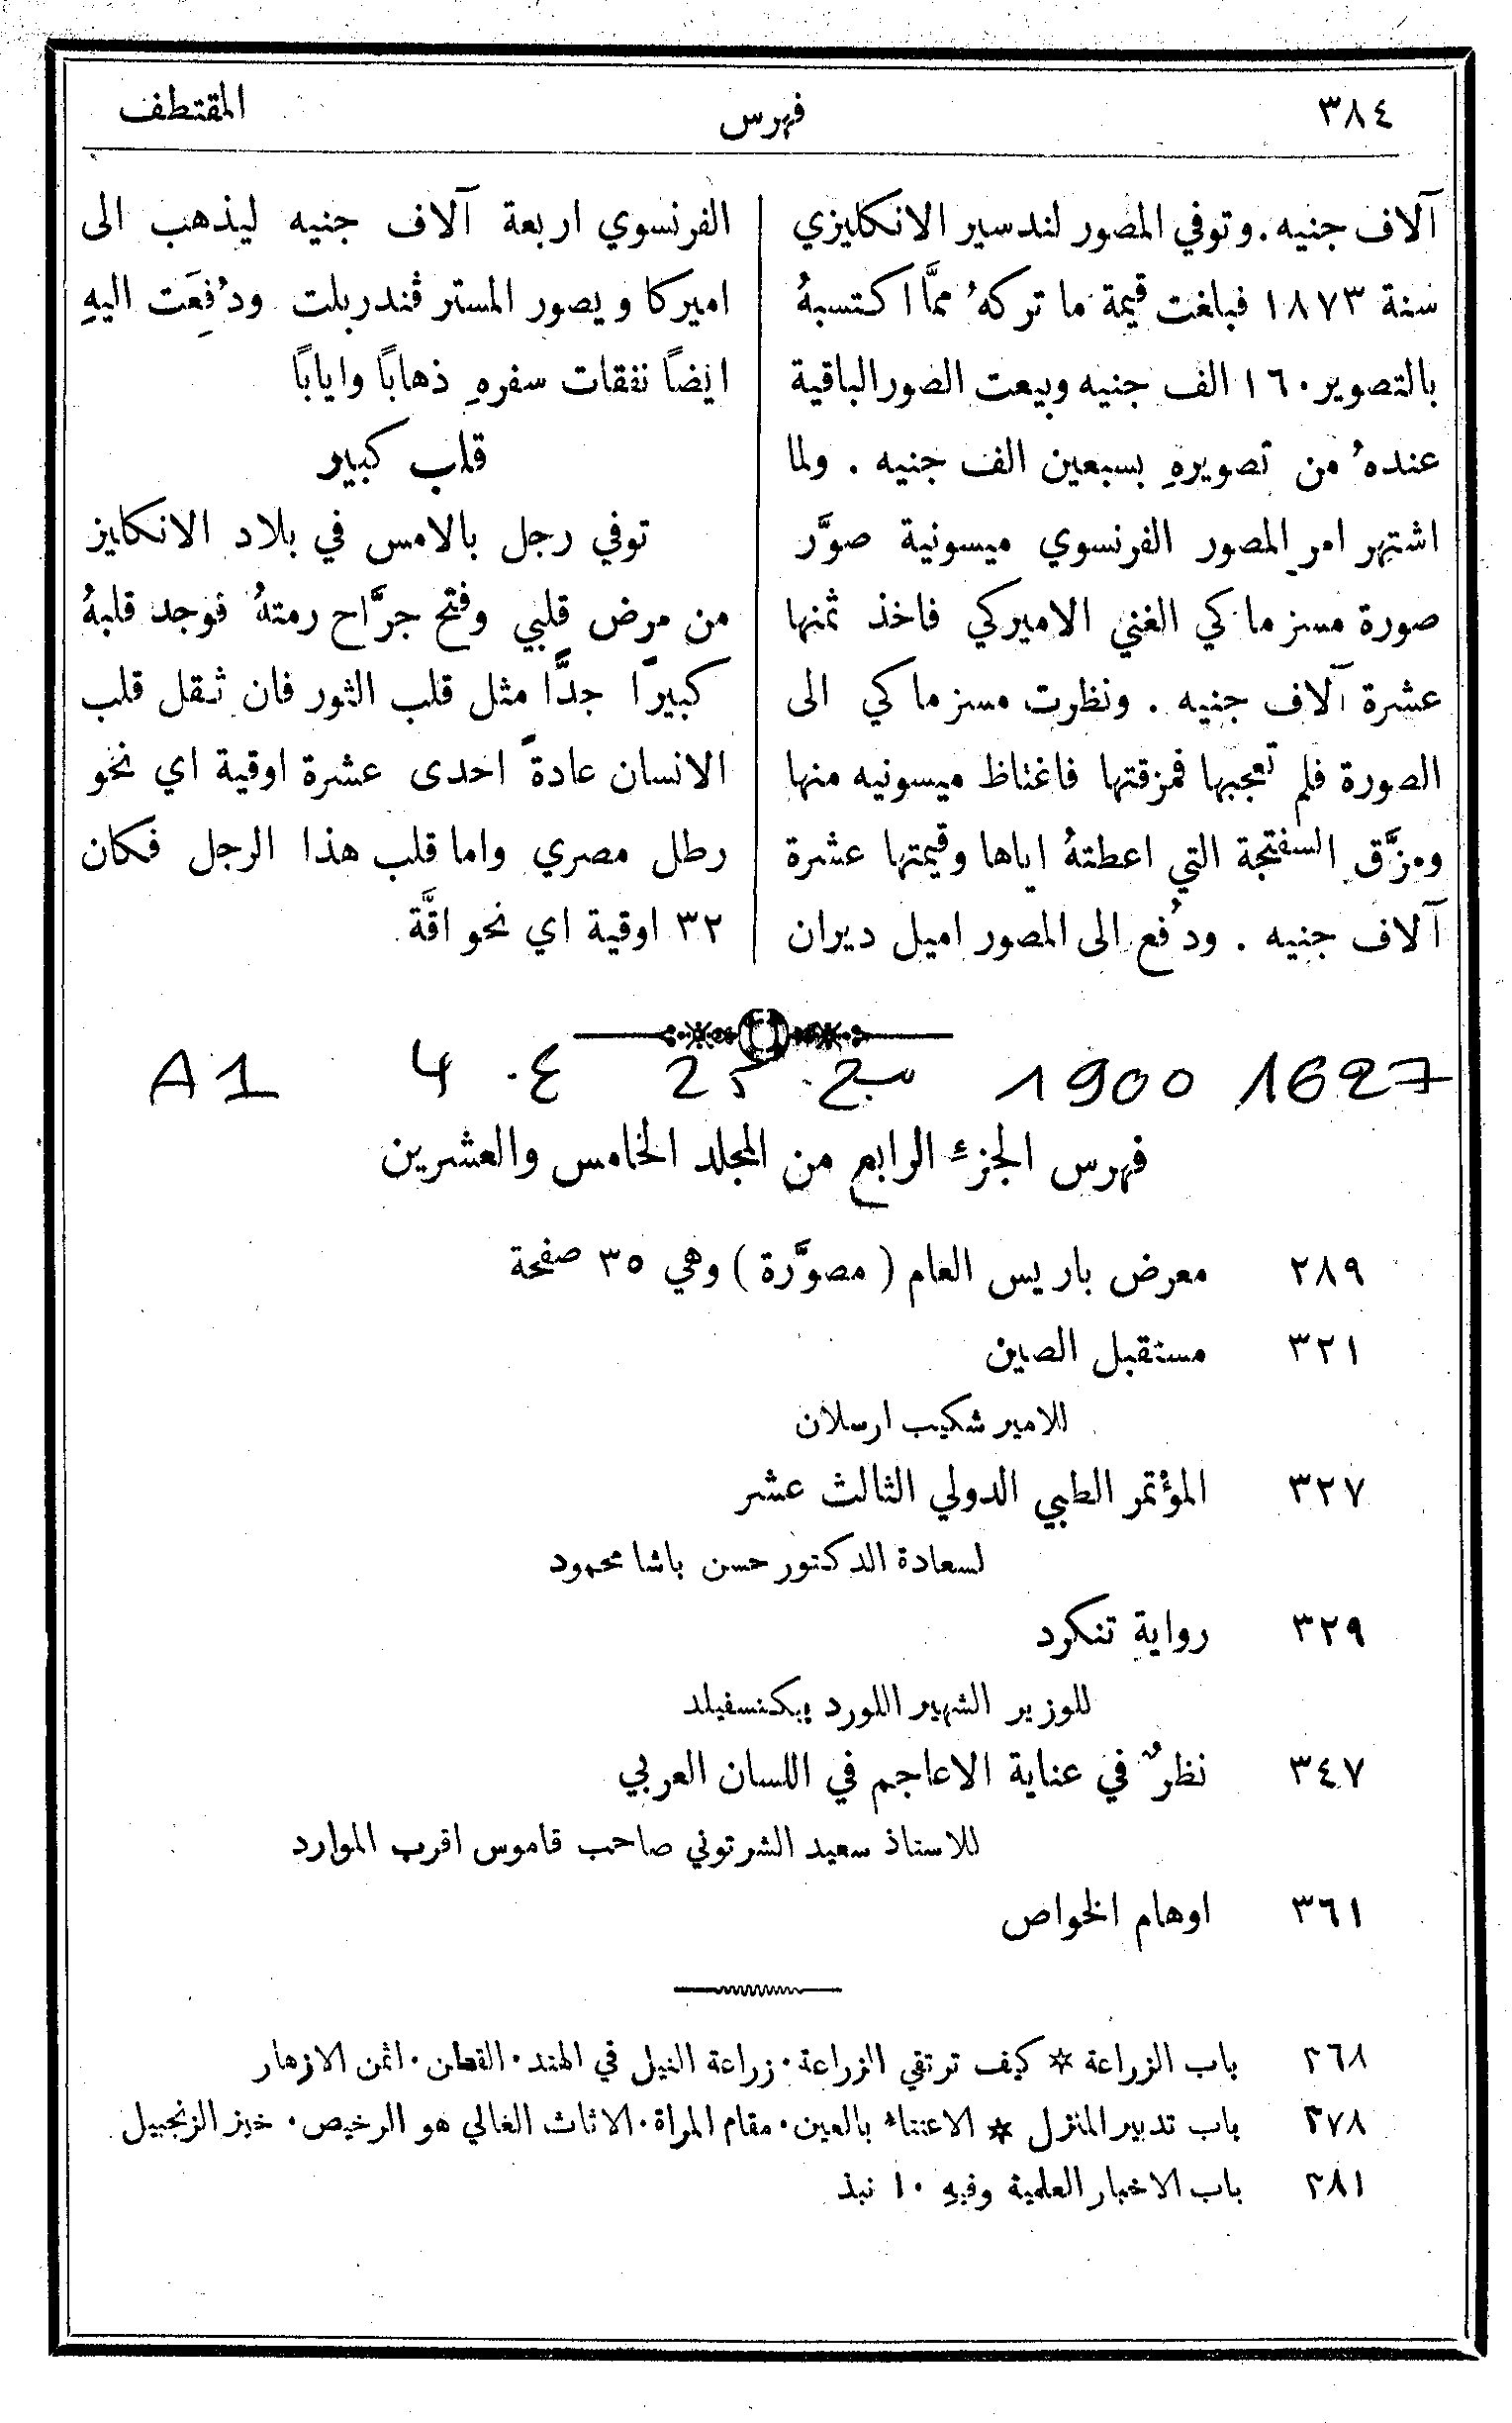 ٣٨٤ فهرس المقتطف
آلاف جنيه. وتوفي المصور لندسير الانكليزي
سنة ١٨٧٣ فبلغت قيمة ما تركهُ ممَّا اكتسبهُ
بالتصوير ١٦٠ الف جنيه وبيعت الصور الباقية
عندهُ من تصويرهِ بسبعين الف جنيه . ولما
اشتهر امر المصور الفرنسوي ميسونية صوَّر
صورة مسز ماكي الغني الاميركي فاخذ ثمنها
عشرة آلاف جنيه . ونظرت مسز ماكي الى
الصورة فلم تعجبها فمزقتها فاغتاظ ميسونيه منها
ومزَّق السفتجة التي اعطتهُ اياها وقيمتها عشرة
آلاف جنيه . ودُفع الى المصور اميل ديران
الفرنسوي اربعة آلاف جنيه ليذهب الى
اميركا ويصور المستر ڤندربلت ودُفِعَت اليهِ
ايضاً نفقات سفرهِ ذهاباً واياباً
قلب كبير
توفي رجل بالامس في بلاد الانكليز
من مرض قلبي وفتح جرَّاح رمتهُ فوجد قلبهُ
كبيرًا جدًّا مثل قلب الثور فان ثقل قلب
الانسان عادةً احدى عشرة اوقية اي نحو
رطل مصري واما قلب هذا الرجل فكان
٣٢ اوقية اي نحو اقَّة
1627 1900 مج. 25 ع. 4 A1
فهرس الجزء الرابع من المجلد الخامس والعشرين
٢٨٩ معرض باريس العام (مصوَّرة) وهي ٣٥ صفحة
٣٢١ مستقبل الصين
للامير شكيب ارسلان
٣٢٧ المؤتمر الطبي الدولي الثالث عشر
لسعادة الدكتور حسن باشا محمود
٣٢٩ رواية تنكرد
للوزير الشهير اللورد بيكنسفيلد
٣٤٧ نظرٌ في عناية الاعاجم في اللسان العربي
للاستاذ سعيد الشرتوني صاحب قاموس اقرب الموارد
٣٦١ اوهام الخواص
٣٦٨ باب الزراعة * كيف ترتقي الزراعة. زراعة النيل في الهند. القطن. اثمن الازهار
٣٧٨ باب تدبير المنزل * الاعتناء بالعين. مقام المراة. الاثاث الغالي هو الرخيص. خبز الزنجبيل
٣٨١ باب الاخبار العلمية وفيهِ ١٠ نبذ